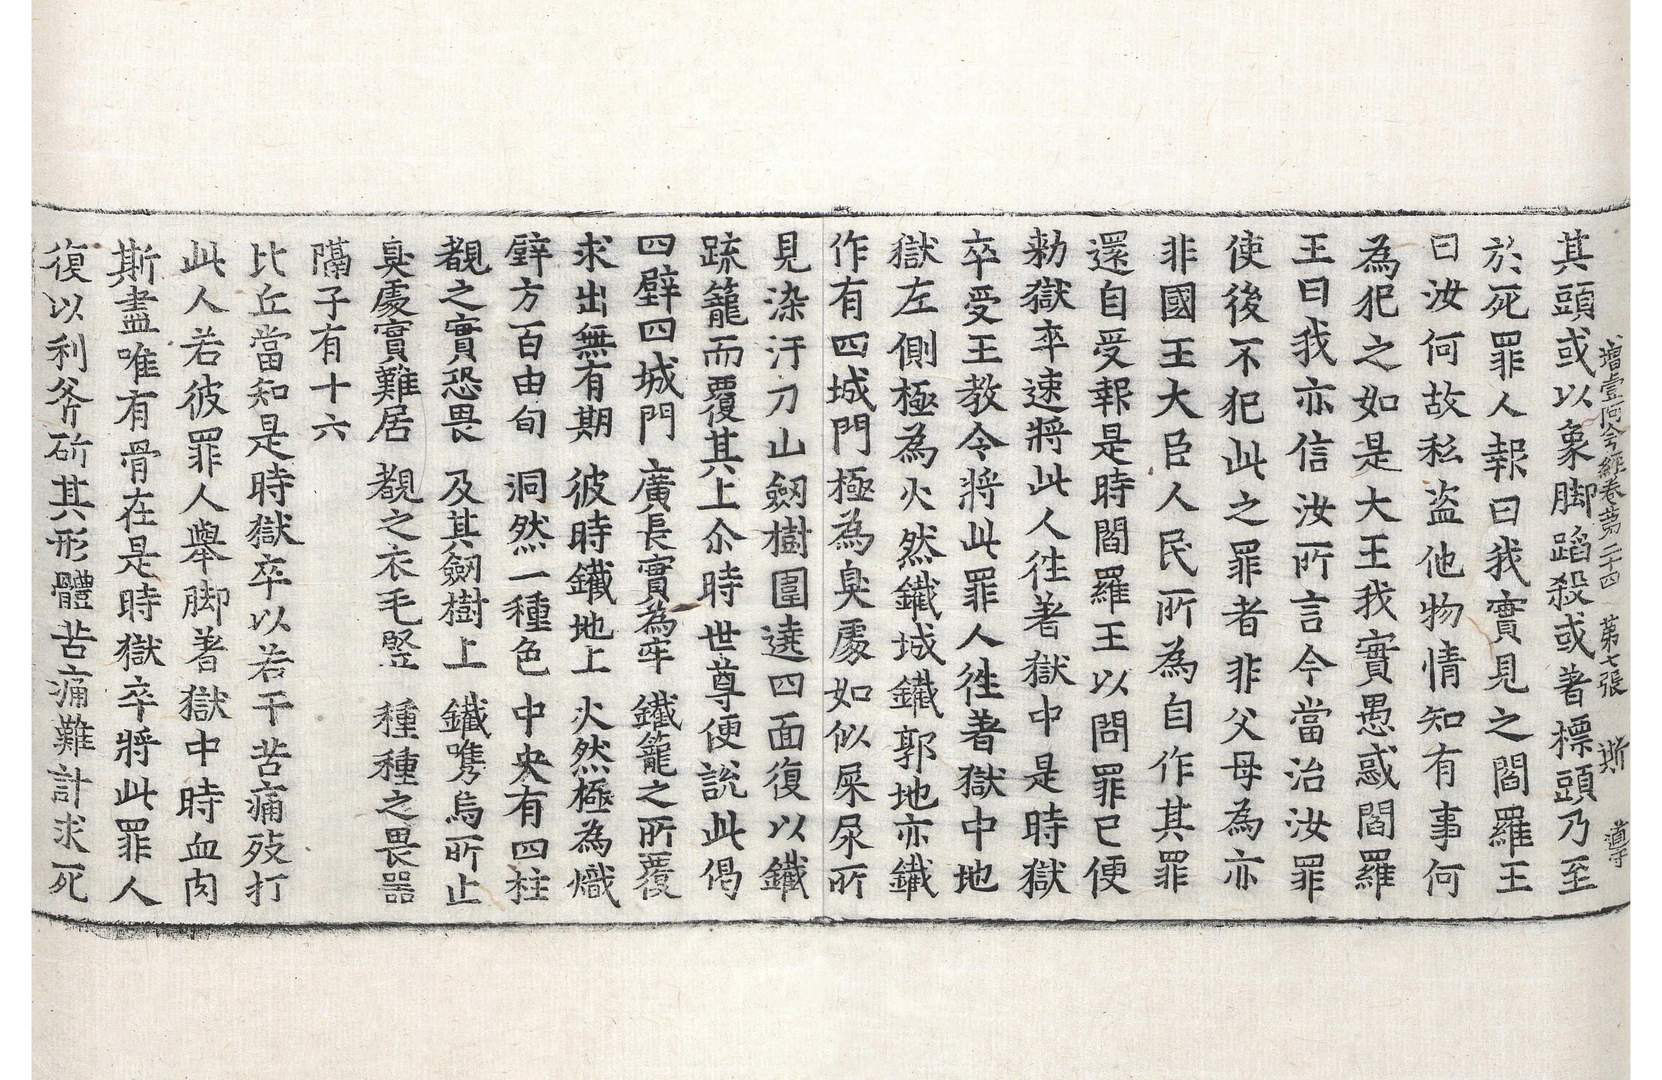 增壹阿含經卷第二十四 第七張 斯 道守
其頭或以象脚蹈殺或著標頭乃至
於死罪人報曰我實見之閻羅王
曰汝何故私盜他物情知有事何
為犯之如是大王我實愚惑閻羅
王曰我亦信汝所言今當治汝罪
使後不犯此之罪者非父母為亦
非國王大臣人民所為自作其罪
還自受報是時閻羅王以問罪已便
勑獄卒速將此人往著獄中是時獄
卒受王教令將此罪人往著獄中地
獄左側極為火然鐵城鐵郭地亦鐵
作有四城門極為臭處如似屎尿所
見染汙刀山劒樹圍遶四面復以鐵
疏籠而覆其上尒時世尊便說此偈
四壁四城門 廣長實為牢 鐵籠之所覆
求出無有期 彼時鐵地上 火然極為熾
壁方百由旬 洞然一種色 中央有四柱
覩之實恐畏 及其劒樹上 鐵㗾烏所止
臭處實難居 覩之衣毛竪 種種之畏器
隔子有十六
比丘當知是時獄卒以若干苦痛歐打
此人若彼罪人舉脚著獄中時血肉
斯盡唯有骨在是時獄卒將此罪人
復以利斧斫其形體苦痛難計求死